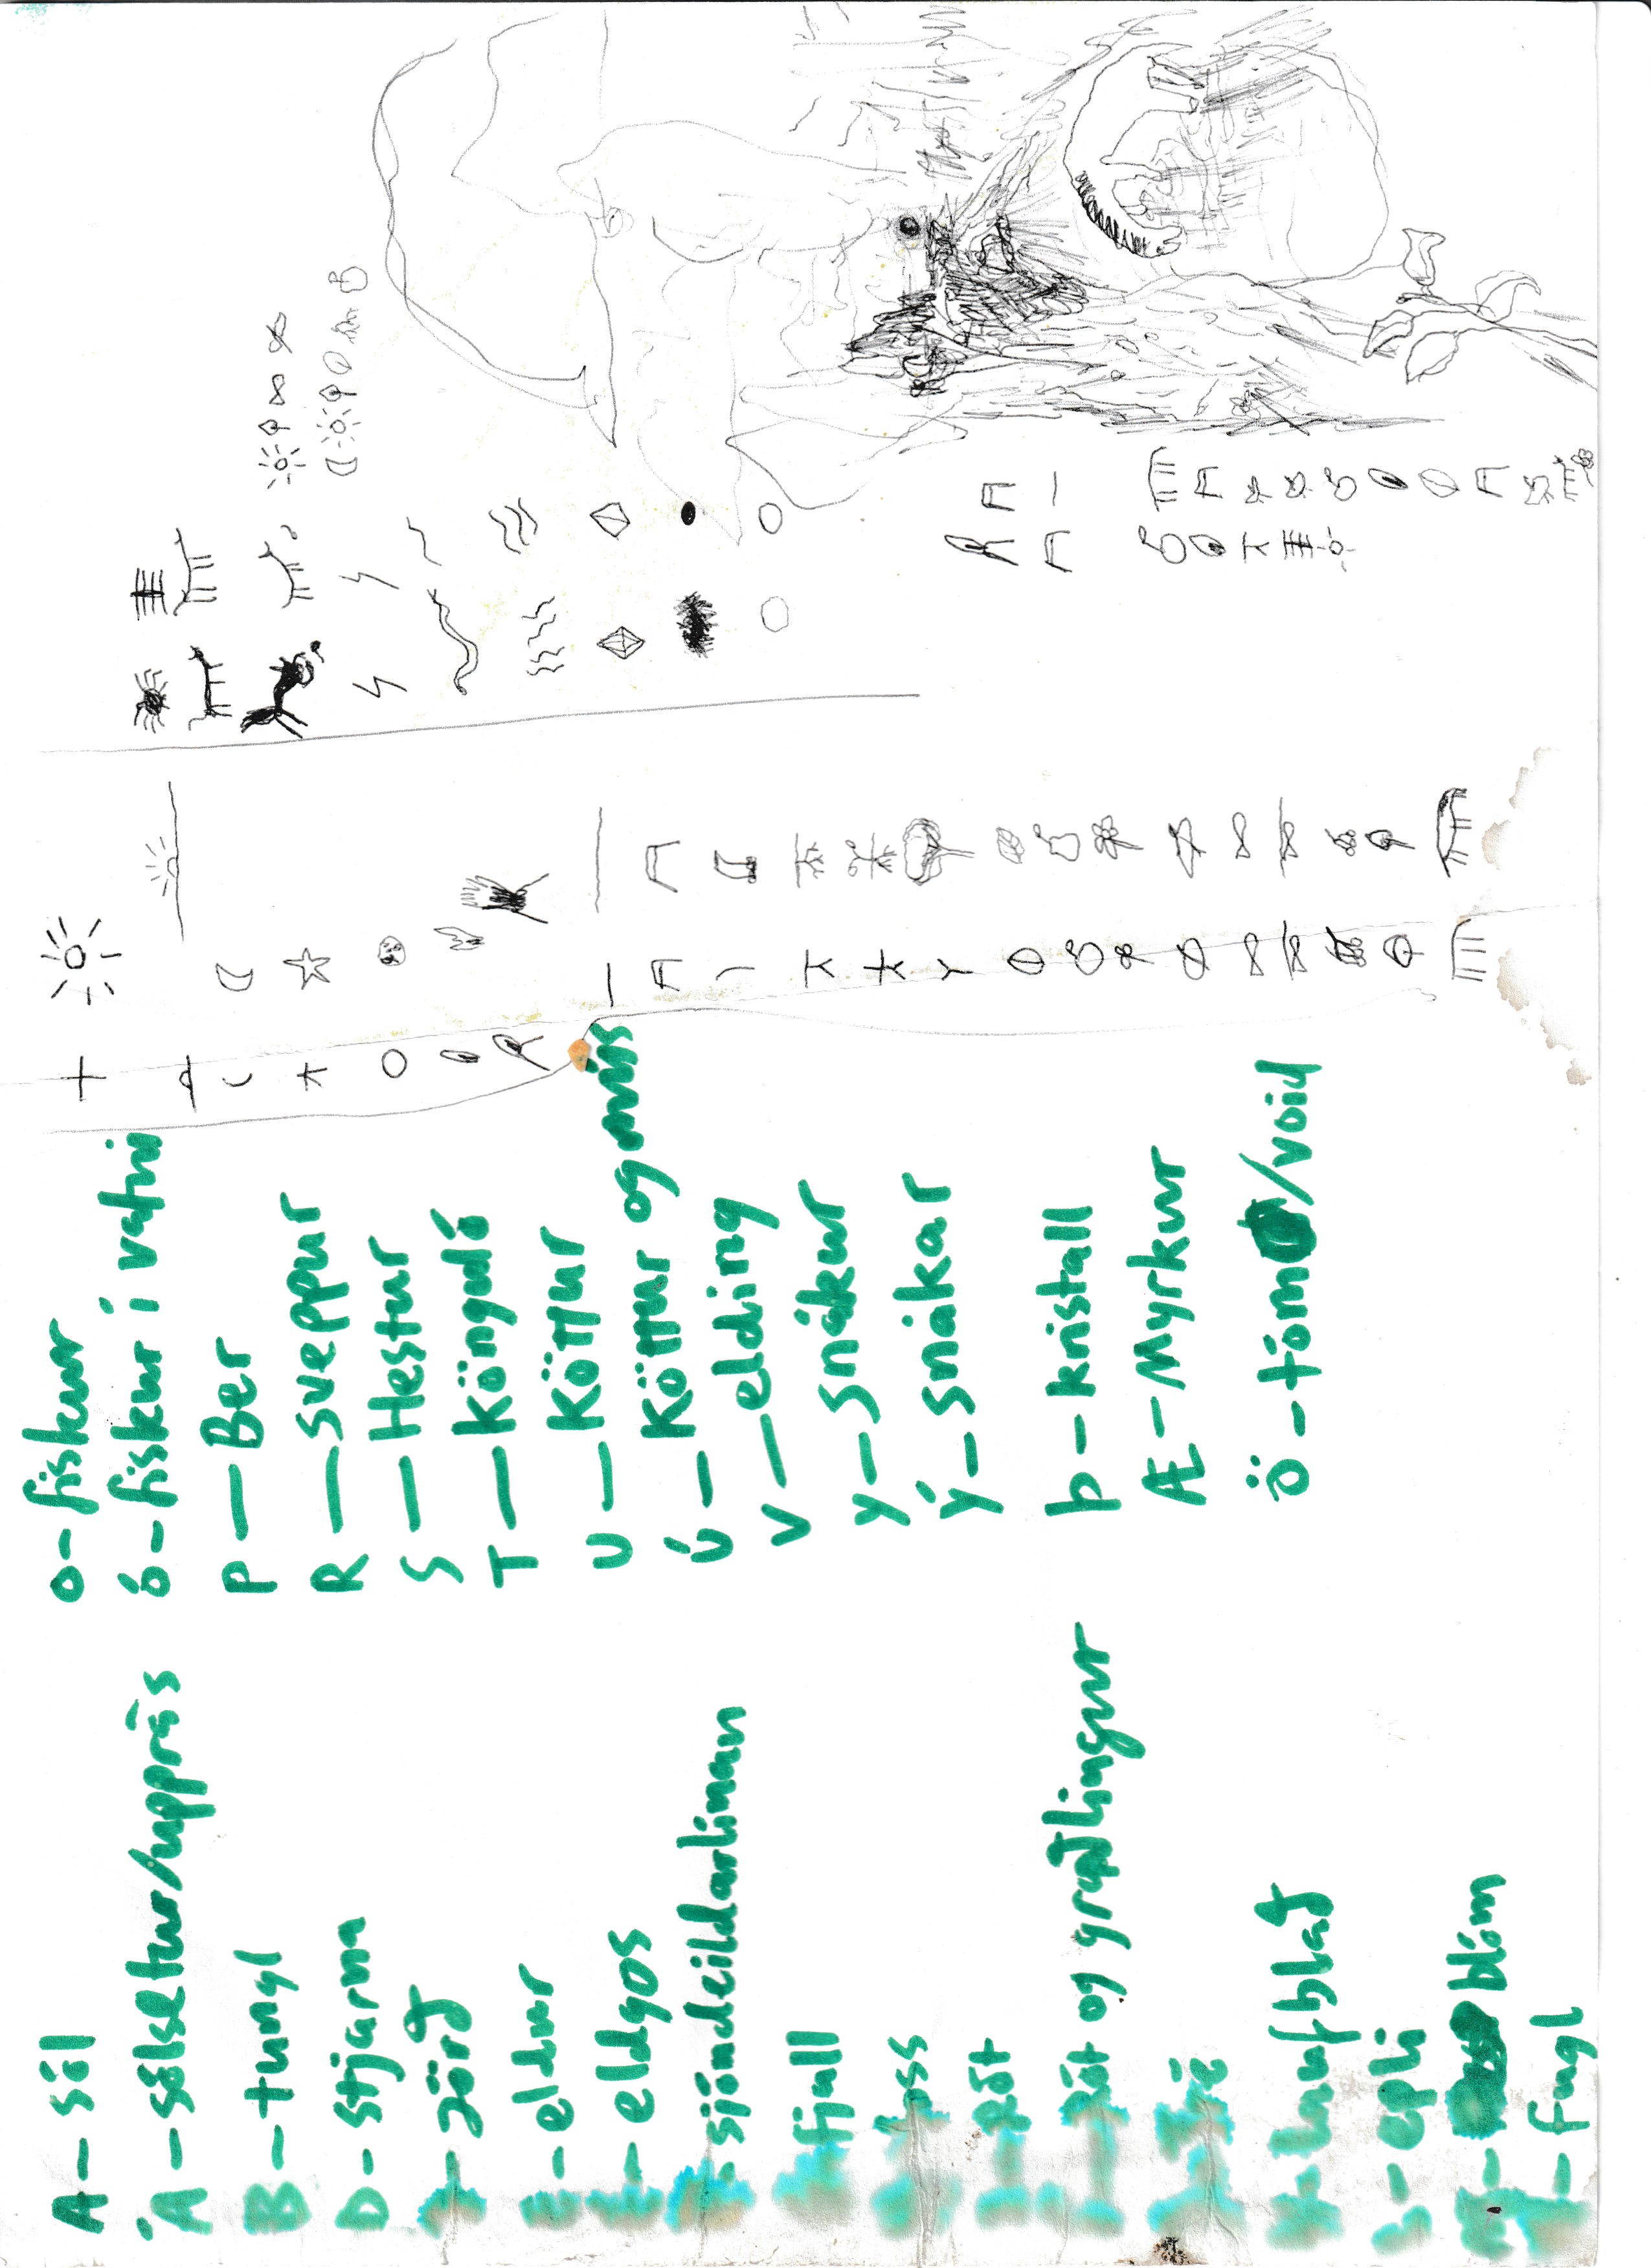 A - sól
Á - sólsetur/upprás
B - tungl
D - stjarna
- jörð
E - eldur
- eldgos
- sjóndeildarlínan
fjall
foss
- Rót
- Rót og græðlingur
- Tré
- laufblað
- epli
- blóm
- fugl
o - fiskur
ó - fiskur í vatni
P - Ber
R - sveppur
S - Hestur
T - Könguló
U - Köttur
Ú - Köttur og mús
V - elding
y - snákur
ý - snákar
þ - kristall
Æ - Myrkur
ö - tóm/void